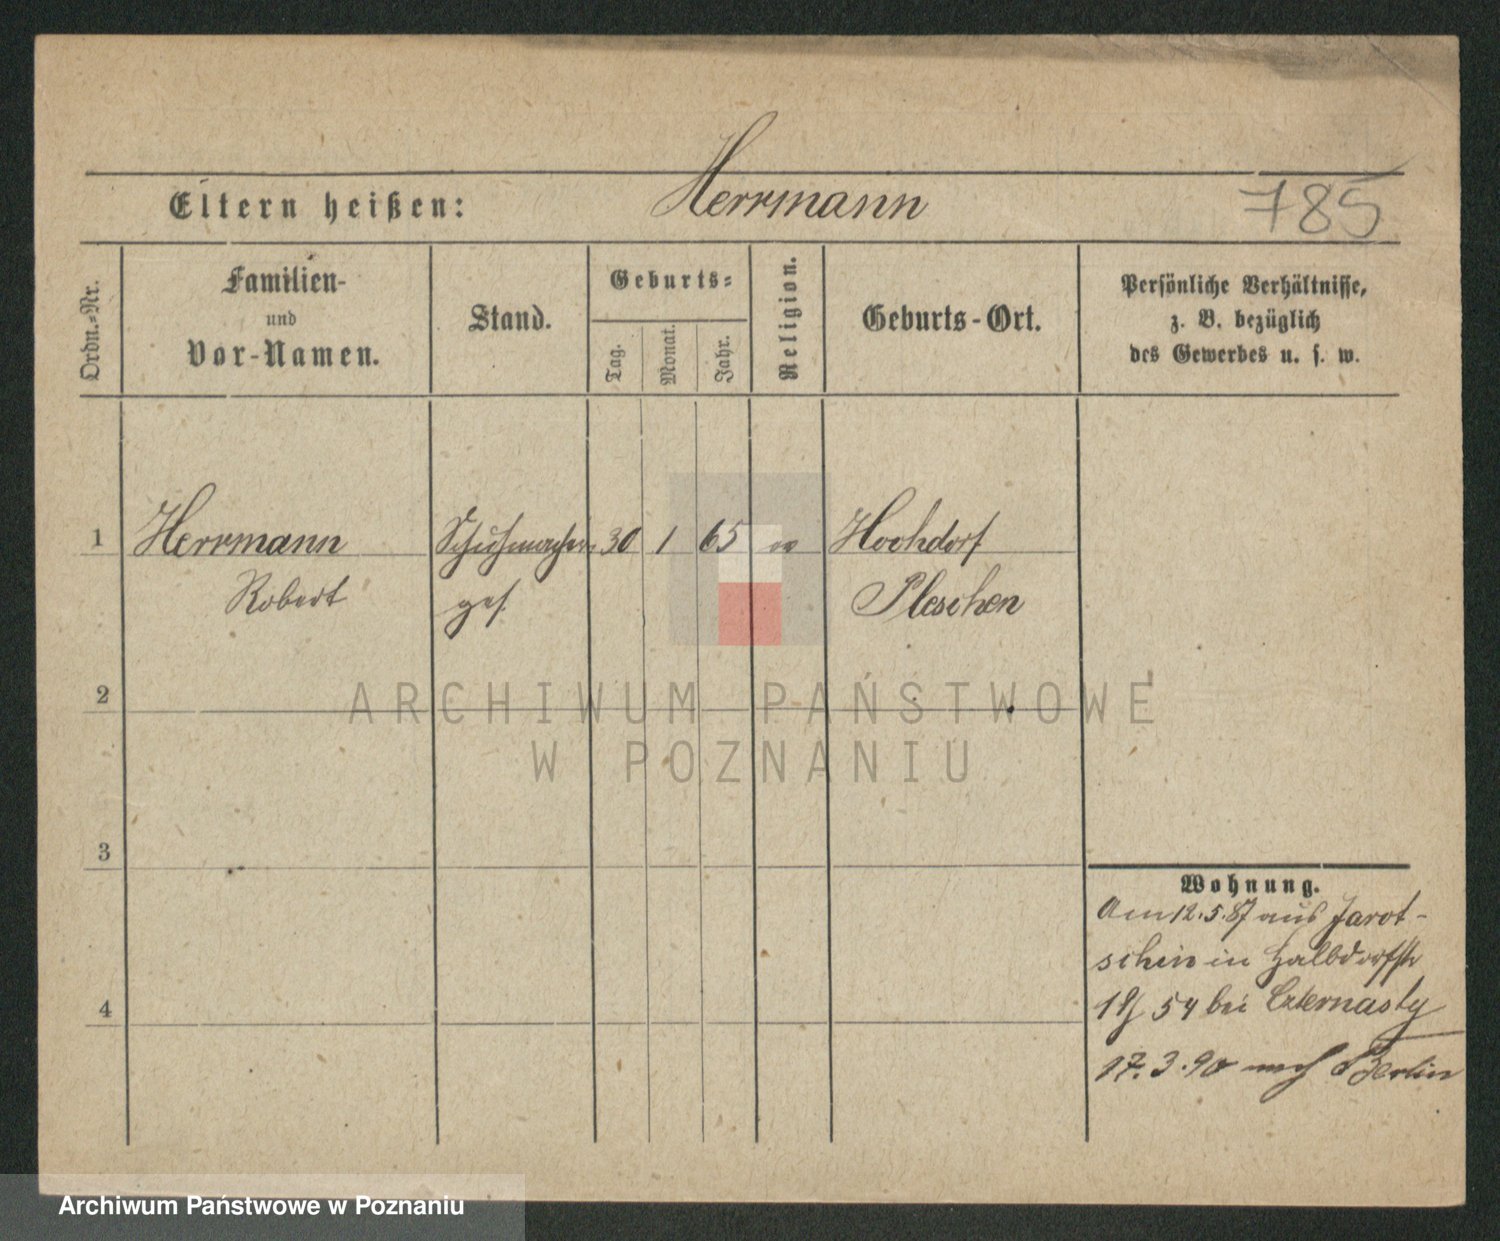 Eltern heißen: Herrmann 785
Ordn.-Nr.
Familien-
und
Vor-Namen.
Stand.
Geburts-
Tag.
Monat.
Jahr.
Religion.
Geburts-Ort.
Persönliche Verhältnisse,
z. B. bezüglich
des Gewerbes u. s. w.
1 Herrmann Schuhmacher 30 1 65 Hochdorf
Robert ges. Pleschen
2
3
4
Wohnung.
Am 12.5.87 aus Jarot-
schin in Halbdorfstr
54 bei
17.3.90 nach Berlin
ARCHIWUM PAŃSTWOWE
W POZNANIU
Archiwum Państwowe w Poznaniu